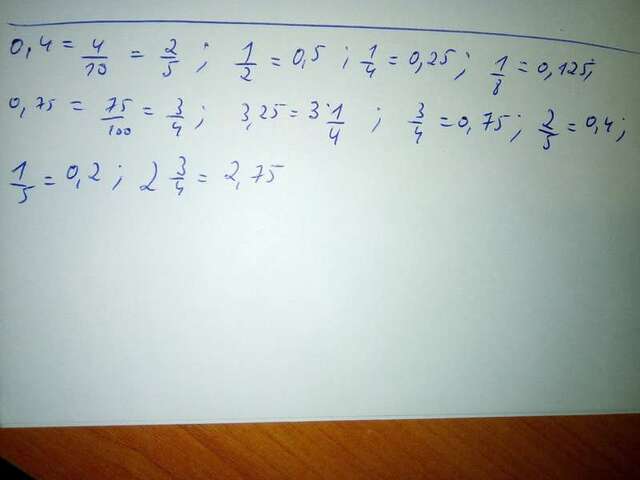 0,4 = 4/10 = 2/5 ; 1/2 = 0,5 ; 1/4 = 0,25 ; 1/8 = 0,125;
0,75 = 75/100 = 3/4 ; 3,25 = 3 1/4 ; 3/4 = 0,75 ; 2/5 = 0,4 ;
1/5 = 0,2 ; 2 3/4 = 2,75